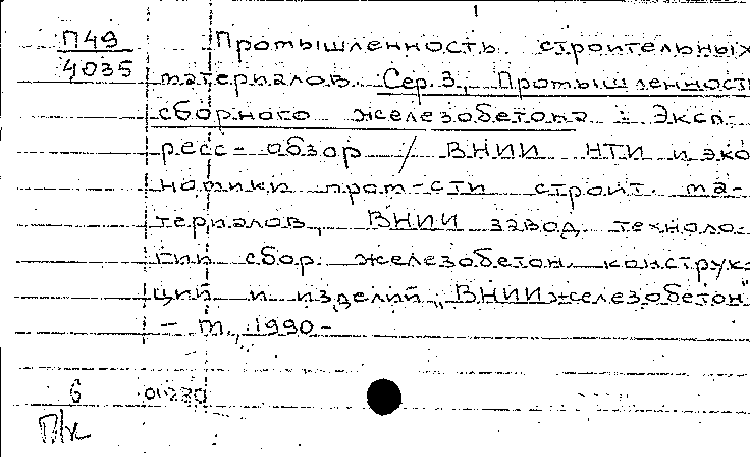 1
П49 Промышленность строительных
4035 материалов. Сер. 3, Промышленност
сборного железобетона : Эксп-
ресс-обзор / ВНИИ НТИ и эко
номики пром-сти строит. ма-
териалов, ВНИИ завод. техноло-
гии сбор. железобетон. конструк-
ций и изделий "ВНИИжелезобетон"
- М., 1990-
6
П/к